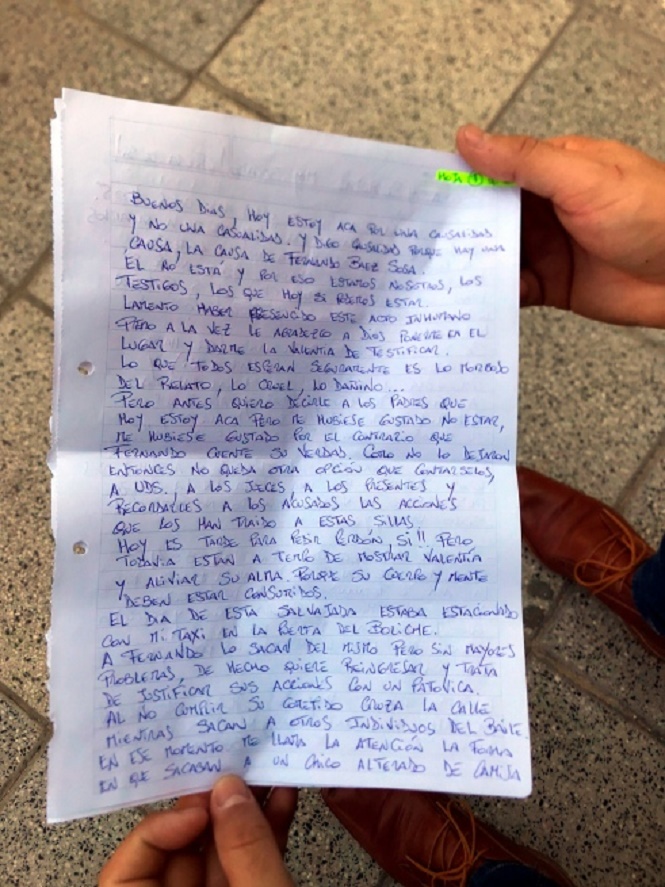 HOJA 1
BUENOS DIAS, HOY ESTOY ACA POR UNA CAUSALIDAD
Y NO UNA CASUALIDAD. Y DIGO CAUSALIDAD PORQUE HAY UNA
CAUSA, LA CAUSA DE FERNANDO BAEZ SOSA.
EL NO ESTÁ Y POR ESO ESTAMOS NOSOTROS, LOS
TESTIGOS, LOS QUE HOY SI PODEMOS ESTAR.
LAMENTO HABER PRESENCIADO ESTE ACTO INHUMANO
PERO A LA VEZ LE AGRADEZCO A DIOS PONERME EN EL
LUGAR Y DARME LA VALENTIA DE TESTIFICAR.
LO QUE TODOS ESPERAN SEGURAMENTE ES LO MORBOSO
DEL RELATO, LO CRUEL, LO DAÑINO...
PERO ANTES QUIERO DECIRLE A LOS PADRES QUE
HOY ESTOY ACA PERO ME HUBIESE GUSTADO NO ESTAR,
ME HUBIESE GUSTADO POR EL CONTRARIO QUE
FERNANDO CUENTE SU VERDAD. COMO NO LO DEJARON
ENTONCES NO QUEDA OTRA OPCIÓN QUE CONTARSELOS,
A UDS., A LOS JUECES, A LOS PRESENTES Y
RECORDARLES A LOS ACUSADOS LAS ACCIONES
QUE LOS HAN TRAIDO A ESTAS SILLAS.
HOY ES TARDE PARA PEDIR PERDÓN, SI!! PERO
TODAVIA ESTAN A TIEMPO DE MOSTRAR VALENTIA
Y ALIVIAR SU ALMA. PORQUE SU CUERPO Y MENTE
DEBEN ESTAR CONSUMIDOS.
EL DIA DE ESTA SALVAJADA ESTABA ESTACIONADO
CON MI TAXI EN LA PUERTA DEL BOLICHE.
A FERNANDO LO SACAN DEL MISMO PERO SIN MAYORES
PROBLEMAS, DE HECHO QUIERE REINGRESAR Y TRATA
DE JUSTIFICAR SUS ACCIONES CON UN PATOVICA.
AL NO CUMPLIR SU COMETIDO CRUZA LA CALLE
MIENTRAS SACAN A OTROS INDIVIDUOS DEL BAILE.
EN ESE MOMENTO ME LLAMA LA ATENCIÓN LA FORMA
EN QUE SACABAN A UN CHICO ALTERADO DE CAMISA